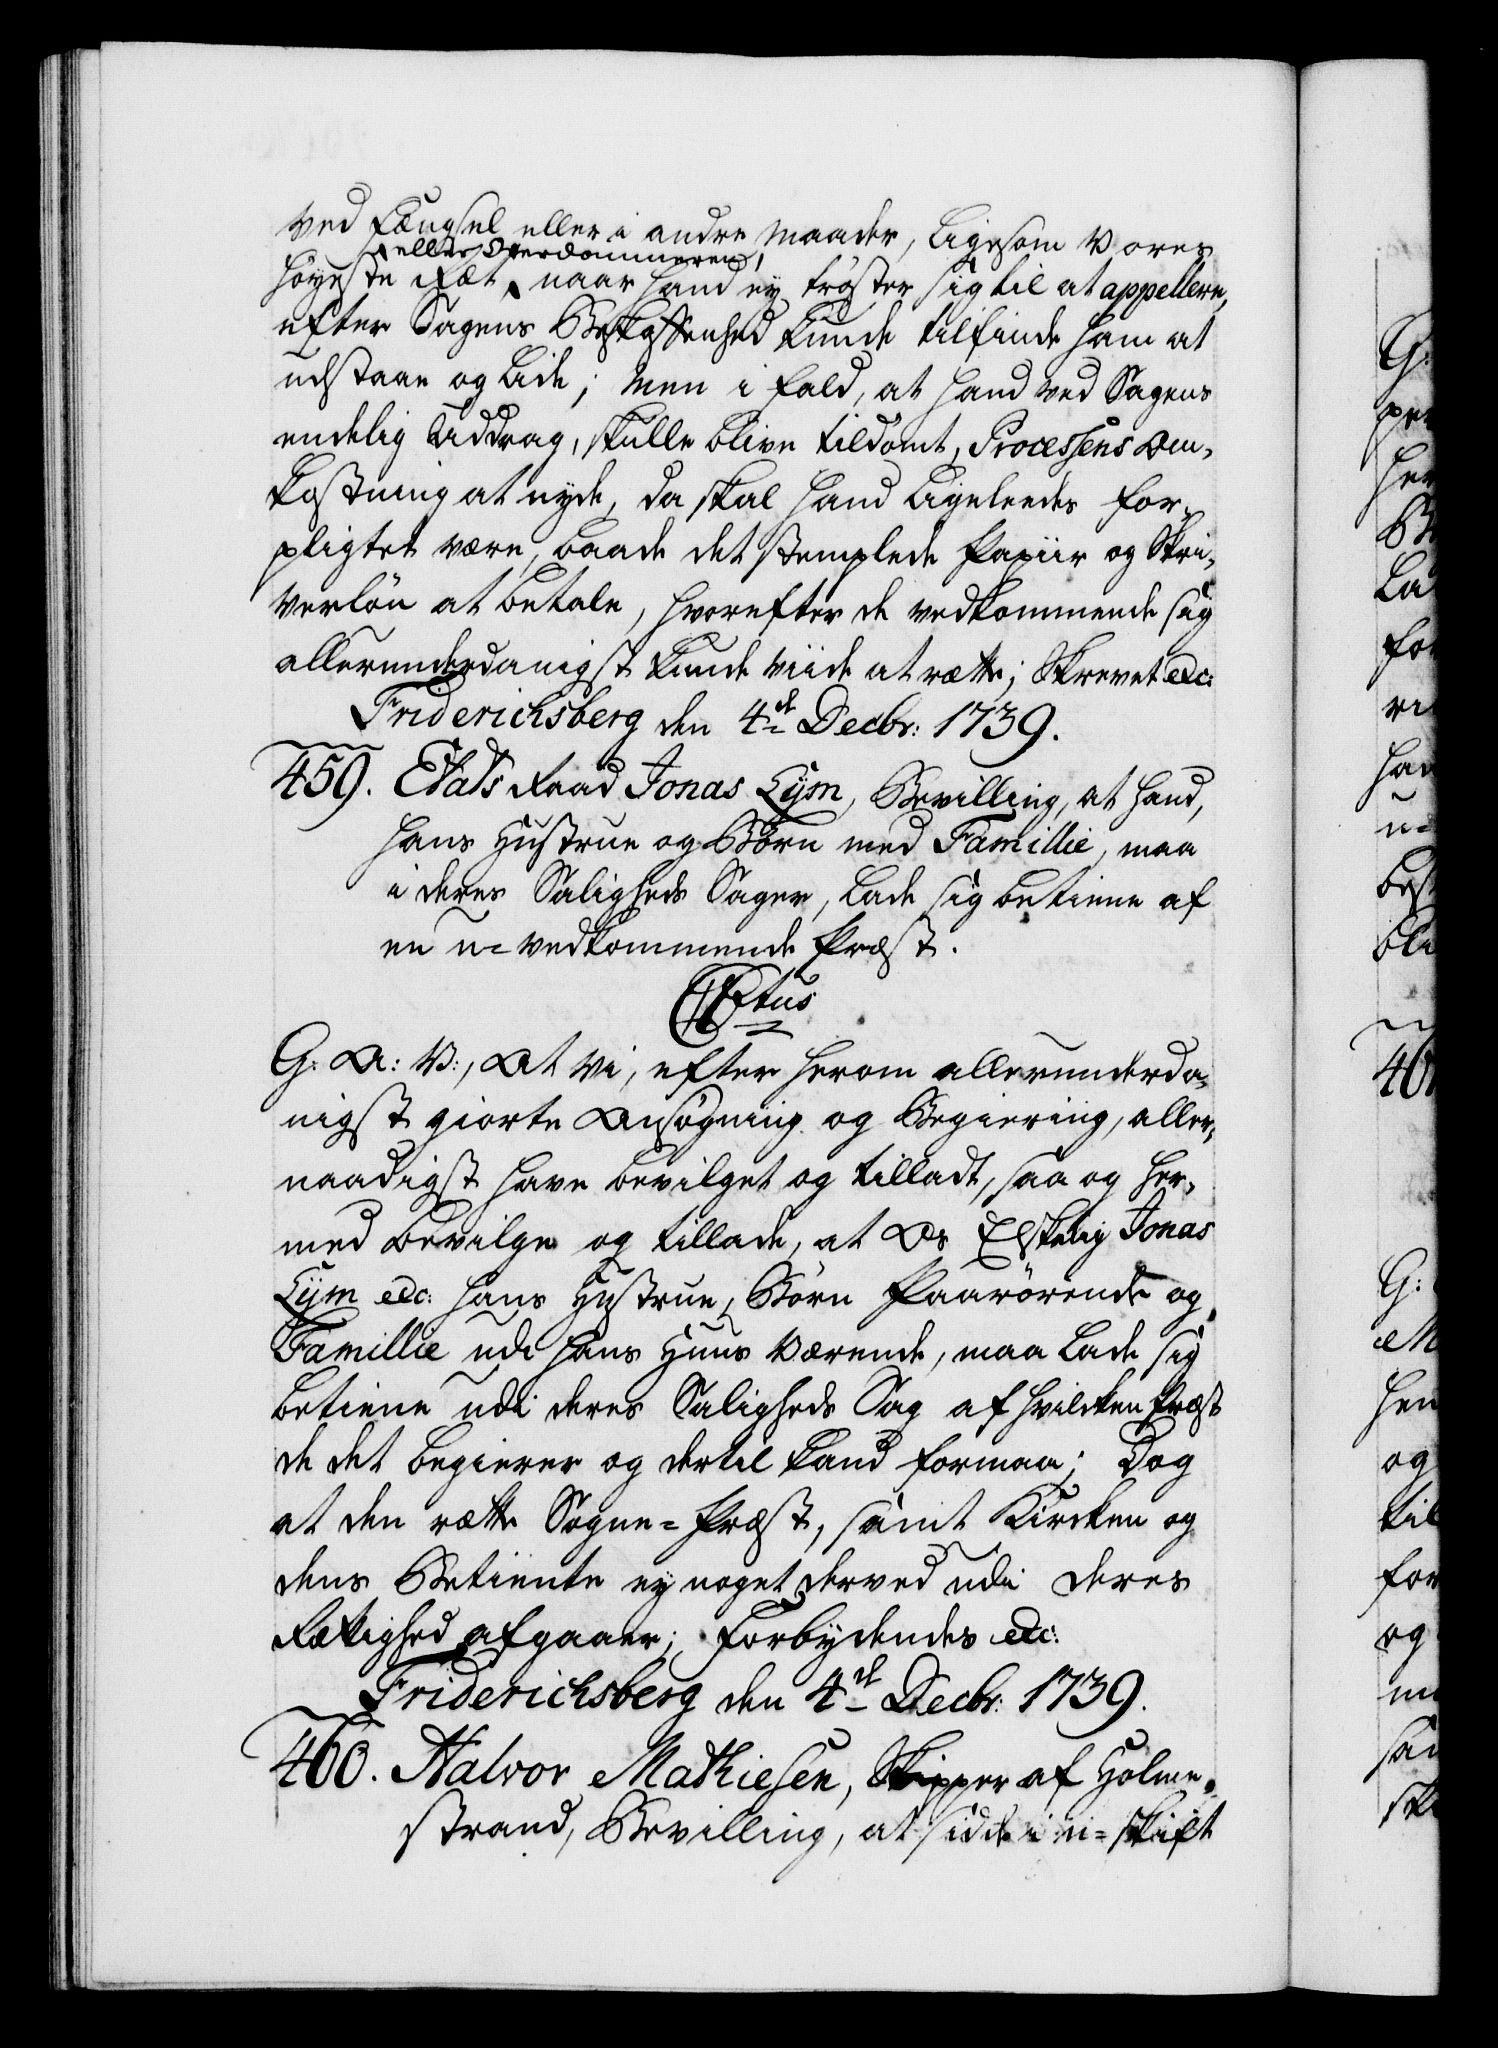 ved Fængsel eller i andre Maader, Ligesom Vores
eller Overdommeren,
Høyeste Ræt, naar hand ey trøster sig til at appellere,
efter Sagens Beskaffenhed kunde tilfinde ham at
udstaae og Lide; Men i fald, at hand ved Sagens
endelig Uddrag, skulle blive tildømt, Processens Om-
kostning at nyde, da skal hand Ligeleedes for-
pligtet være, baade det stemplede Papiir og Skri-
verløn at betale, hvorefter de vedkommende sig
allerunderdanigst kunde viide at rætte; Skrevet etc:
Friderichsberg den 4de Decbr: 1739.
459. Etats Raad Jonas Lÿm, Bevilling, at hand,
hans Hustrue og Børn med Famillie, maa
i deres Saligheds Sager, Lade sig betiene af
en u=vedkommende Præst.
G: A: V:, At Vi, efter herom allerunderda-
nigst giorte Ansøgning og Begiering, aller-
naadigst have bevilget og tilladt, saa og her-
med bevilge og tillade, at Os Elskelig Jonas
Lÿm etc: hans Hustrue, Børn Paarørende og
Famillie udi hans Huus Værende, maa Lade sig
betiene udi deres Saligheds Sag af hvilcken Præst
de det begierer og dertil kand formaa; Dog
at den rætte Sogne=Præst, samt Kircken og
dens Betiente ey noget derved udi deres
Rættighed afgaaer; Forbydendes etc:
Friderichsberg den 4de Decbr: 1739.
460. Halvor Mathiesen, Skipper af Holme-
strand, Bevilling, at sidde i u=skift